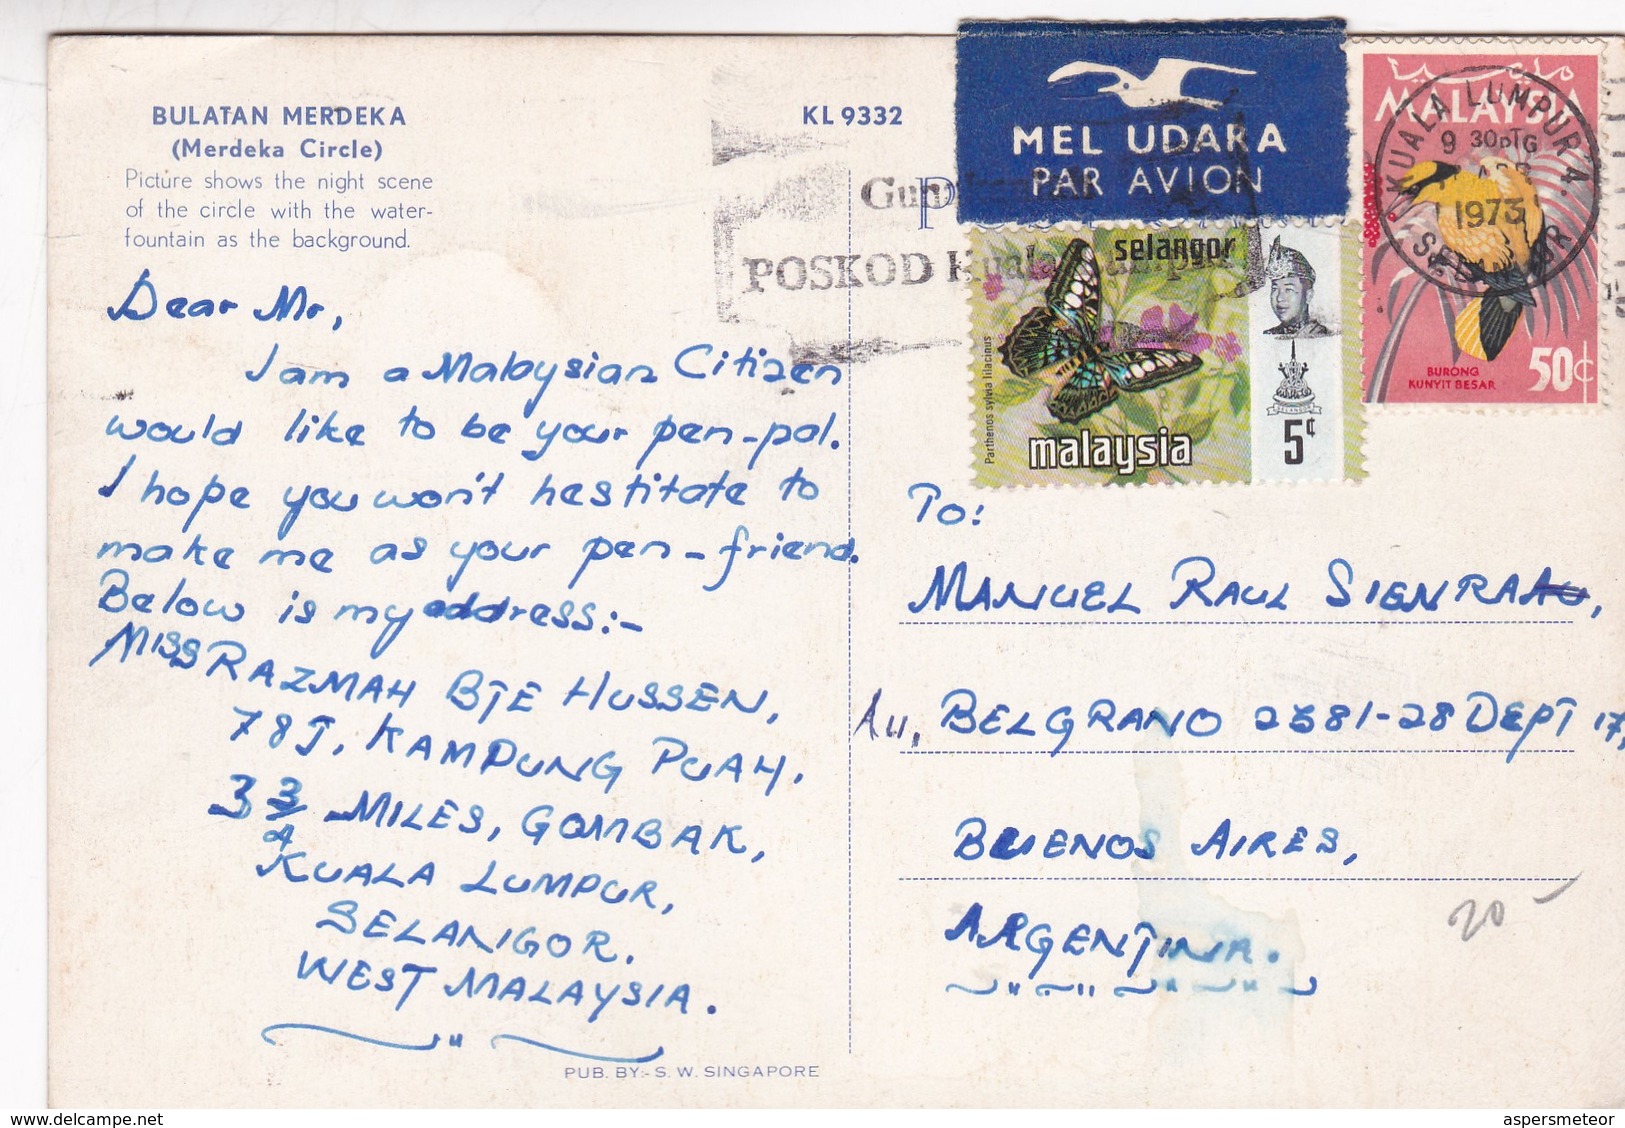 BULATAN MERDEKA
(Merdeka Circle)
Picture shows the night scene
of the circle with the water-
fountain as the background.
KL 9332
Dear Mr,
I am a Malaysian Citizen
would like to be your pen-pal.
I hope you won't hestitate to
make me as your pen-friend.
Below is my address:-
MISS RAZMAH BTE HUSSEN,
78J, KAMPUNG PUAH,
3 3/4 MILES, GOMBAK,
KUALA LUMPUR,
SELANGOR.
WEST MALAYSIA.
PUB. BY:- S. W. SINGAPORE
MEL UDARA
PAR AVION
POSKOD Kuala Lumpur
selangor
Parthenos sylvia lilacinus
malaysia
SELANGOR
5¢
مليسيا
MALAYSIA
KUALA LUMPUR. A.
9 30PTG
1973
SELANGOR
BURONG
KUNYIT BESAR
50¢
To:
MANUEL RAUL SIENRA,
Au, BELGRANO 2381-28 DEPT 17,
BUENOS AIRES,
ARGENTINA.
20-
delcampe.net
aspersmeteor